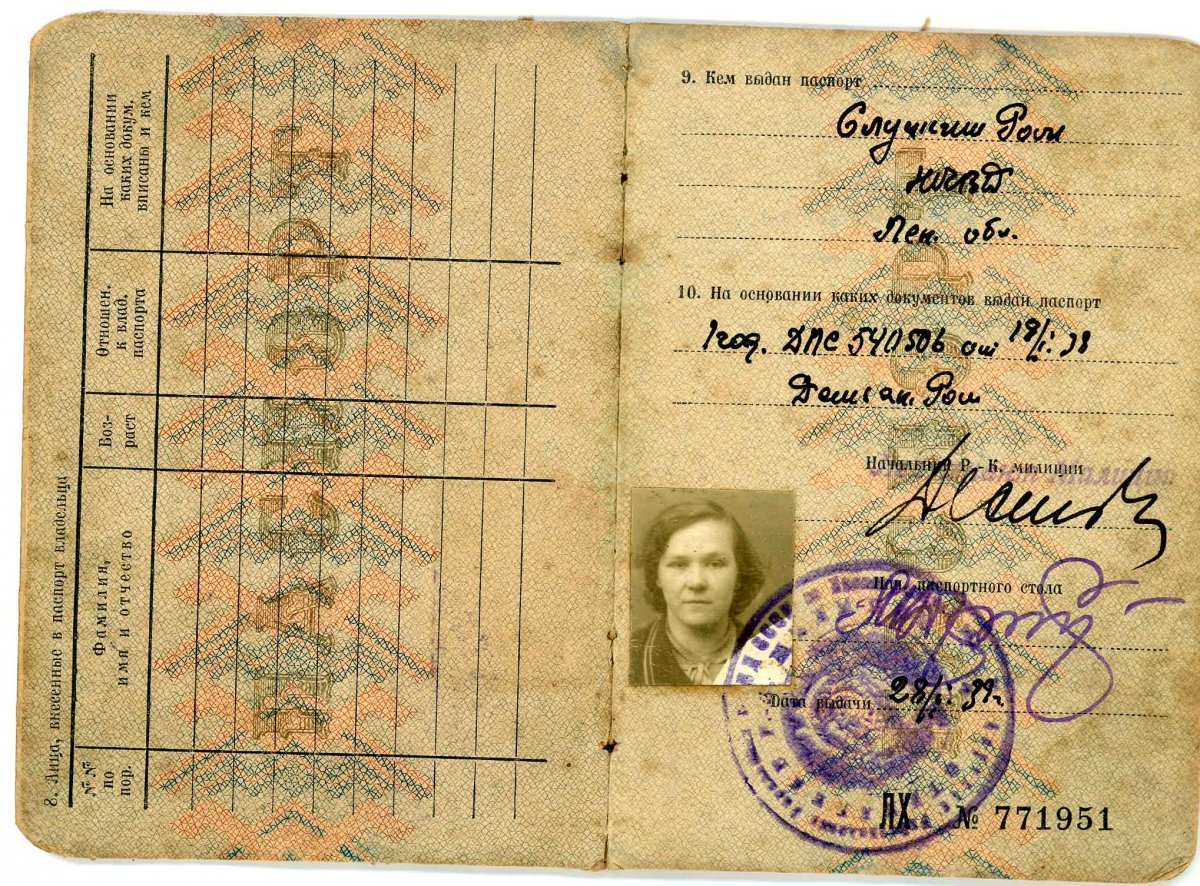 8. Лица, внесенные в паспорт владельца
№№
по
пор.
Фамилия,
имя и отчество
Воз-
раст
Отношен.
к влад.
паспорта
На основании
каких докум,
вписаны и кем
9. Кем выдан паспорт
Слуцким Ром
НКВД
Лен. обл.
10. На основании каких документов выдан паспорт
1 год. ДПС 540506 от 19/I-38
Ром
Начальник Р.-К. милиции
Нач. паспортного стола
Дата выдачи 28/I-39г.
ЛХ № 771951